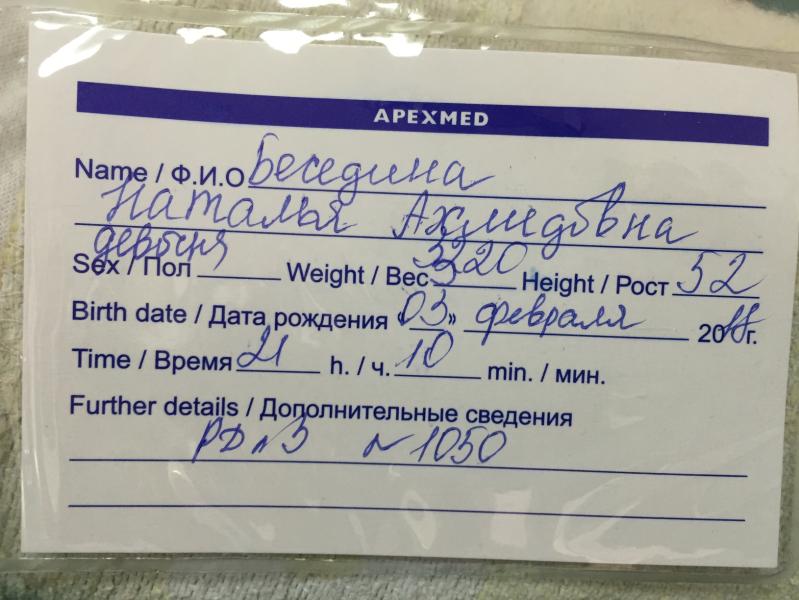 APEXMED
Name / Ф.И.О Беседина
Наталья Ахмедовна
Sex / Пол девочка Weight / Вес 3320 Height / Рост 52
Birth date / Дата рождения «03» февраля 2018г.
Time / Время 21 h. / ч. 10 min. / мин.
Further details / Дополнительные сведения
РД №3 №1050